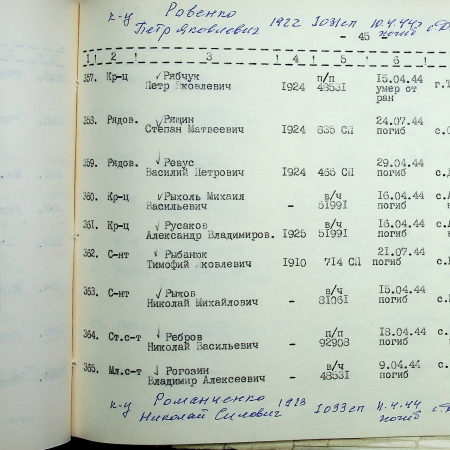 к-ц Ровенко 1922 1031сп 10.4.44г
Петр Яковлевич погиб
- 45 -
1 2 3 4 5 6
357. Кр-ц Рябчук п/п 15.04.44
Петр Яковлевич 1924 48531 умер от
ран
358. Рядов. Рящин 24.07.44
Степан Матвеевич 1924 835 СП погиб
359. Рядов. Ревус 29.04.44
Василий Петрович 1924 465 СП погиб
360. Кр-ц Рыхоль Михаил в/ч 16.04.44
Васильевич - 51991 погиб
361. Кр-ц Русаков в/ч 16.04.44
Александр Владимиров. 1925 51991 погиб
362. С-нт Рыбанюк 21.07.44
Тимофий Яковлевич 1910 714 СП погиб
363. С-нт Рыков в/ч 15.04.44
Николай Михайлович - 81061 погиб
364. Ст.с-т Ребров п/п 18.04.44
Николай Васильевич - 92908 погиб
365. Мл.с-т Рогозин в/ч 9.04.44
Владимир Алексеевич - 48531 погиб
к-ц Романченко 1923 1033сп 11.4.44
Николай Силович погиб